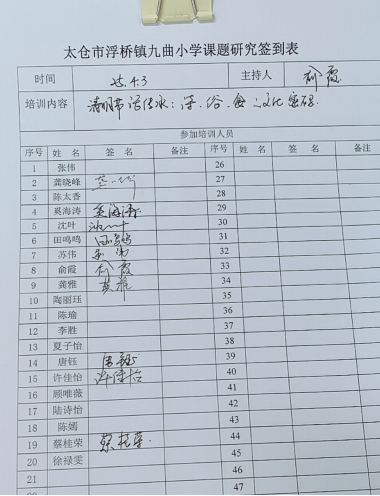 太仓市浮桥镇九曲小学课题研究签到表
时间 25.4.3 主持人 俞霞
培训内容
参加培训人员
序号 姓名 签名 备注 序号 姓名 签名 备注
1 张伟 26
2 龚晓峰 27
3 陈太香 28
4 奚海涛 奚海涛 29
5 沈叶 沈叶 30
6 田鸣鸣 田鸣鸣 31
7 苏伟 苏伟 32
8 俞霞 俞霞 33
9 龚雅 龚雅 34
10 陶丽珏 35
11 陈瑜 36
12 李胜 37
13 夏子怡 38
14 唐钰 唐钰 39
15 许佳怡 许佳怡 40
16 顾唯薇 41
17 陆诗怡 42
18 陈嫣 43
19 蔡桂荣 蔡桂荣 44
20 徐禄雯 45
21 46
47